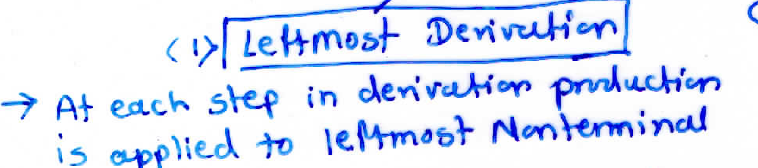 <1> Leftmost Derivation
→ At each step in derivation production
is applied to leftmost Nonterminal